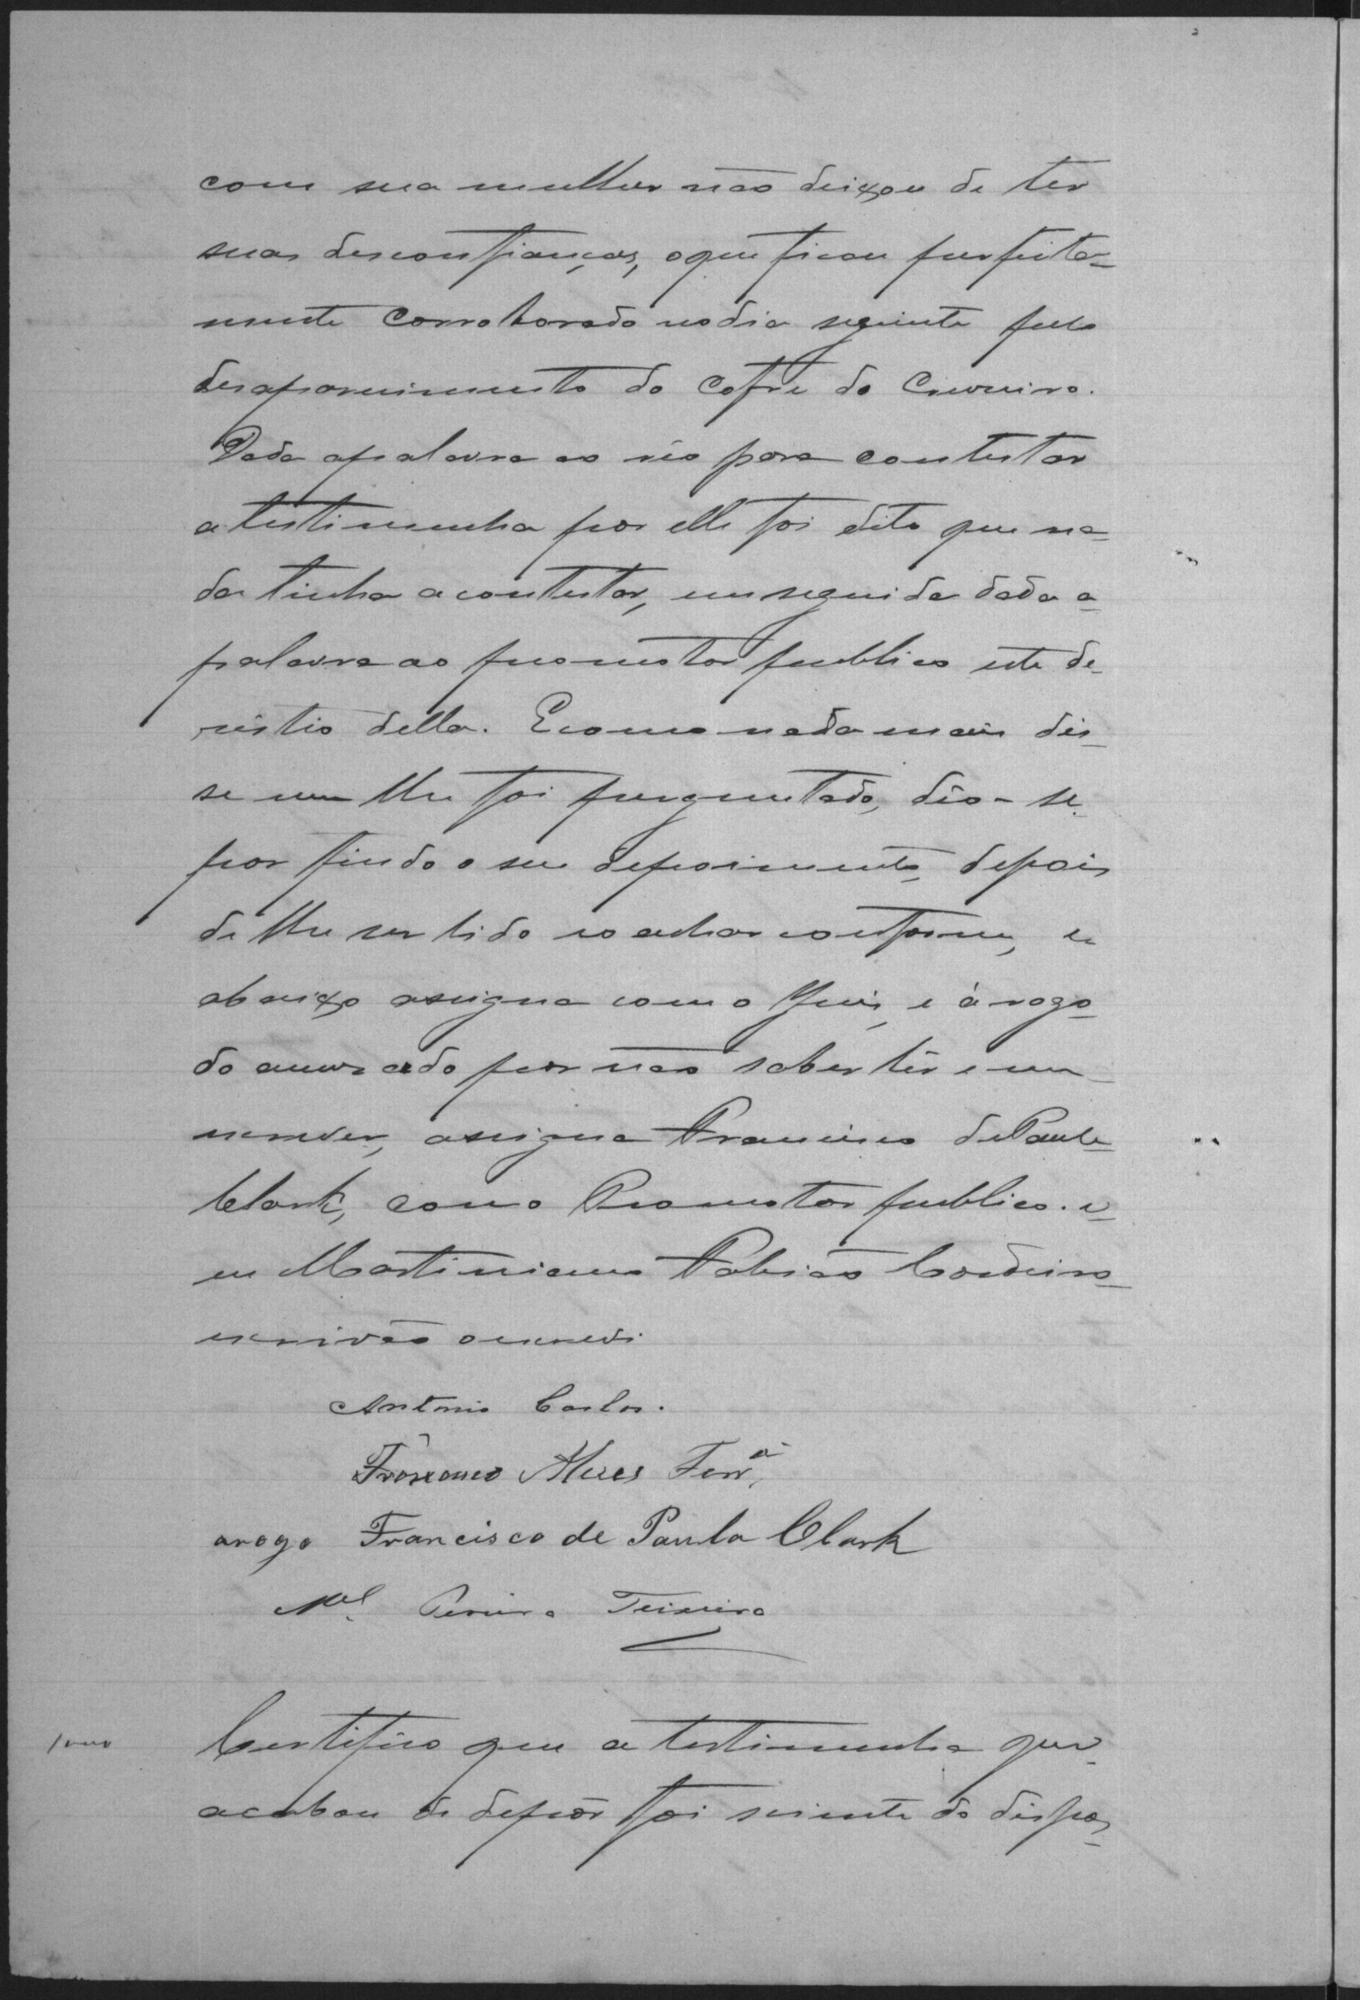 com sua mulher não deixou de ter
suas desconfianças, oque ficou perfeita-
mente corroborado no dia seguinte pelo
desapparecimento do cofre do Cruzeiro.
Dada apalavra ao réo para contestar
a testimunha por elle foi dito que na-
da tinha acontestar, em seguida dada a
palavra ao promotor publico este de-
sistio della. E como nada mais dis-
se nem lhe foi perguntado, dêo-se
por findo o seu depoimento, depois
de lhe ser lido eo achar conforme, e
abaixo assigna com o Juis, e á rogo
do accusado por não saber lêr e nem
escrever, assigna Francisco de Paula
Clark, como Promotor publico. E
eu Martiniano Fabião Cordeiro
escrivão oescrevi
Antonio Carlos.
Alves Ferrª
arogo Francisco de Paula Clark
Mel Pereira Teixeira
Certifico que a testimunha que
acabou de depôr foi sciente do dispos